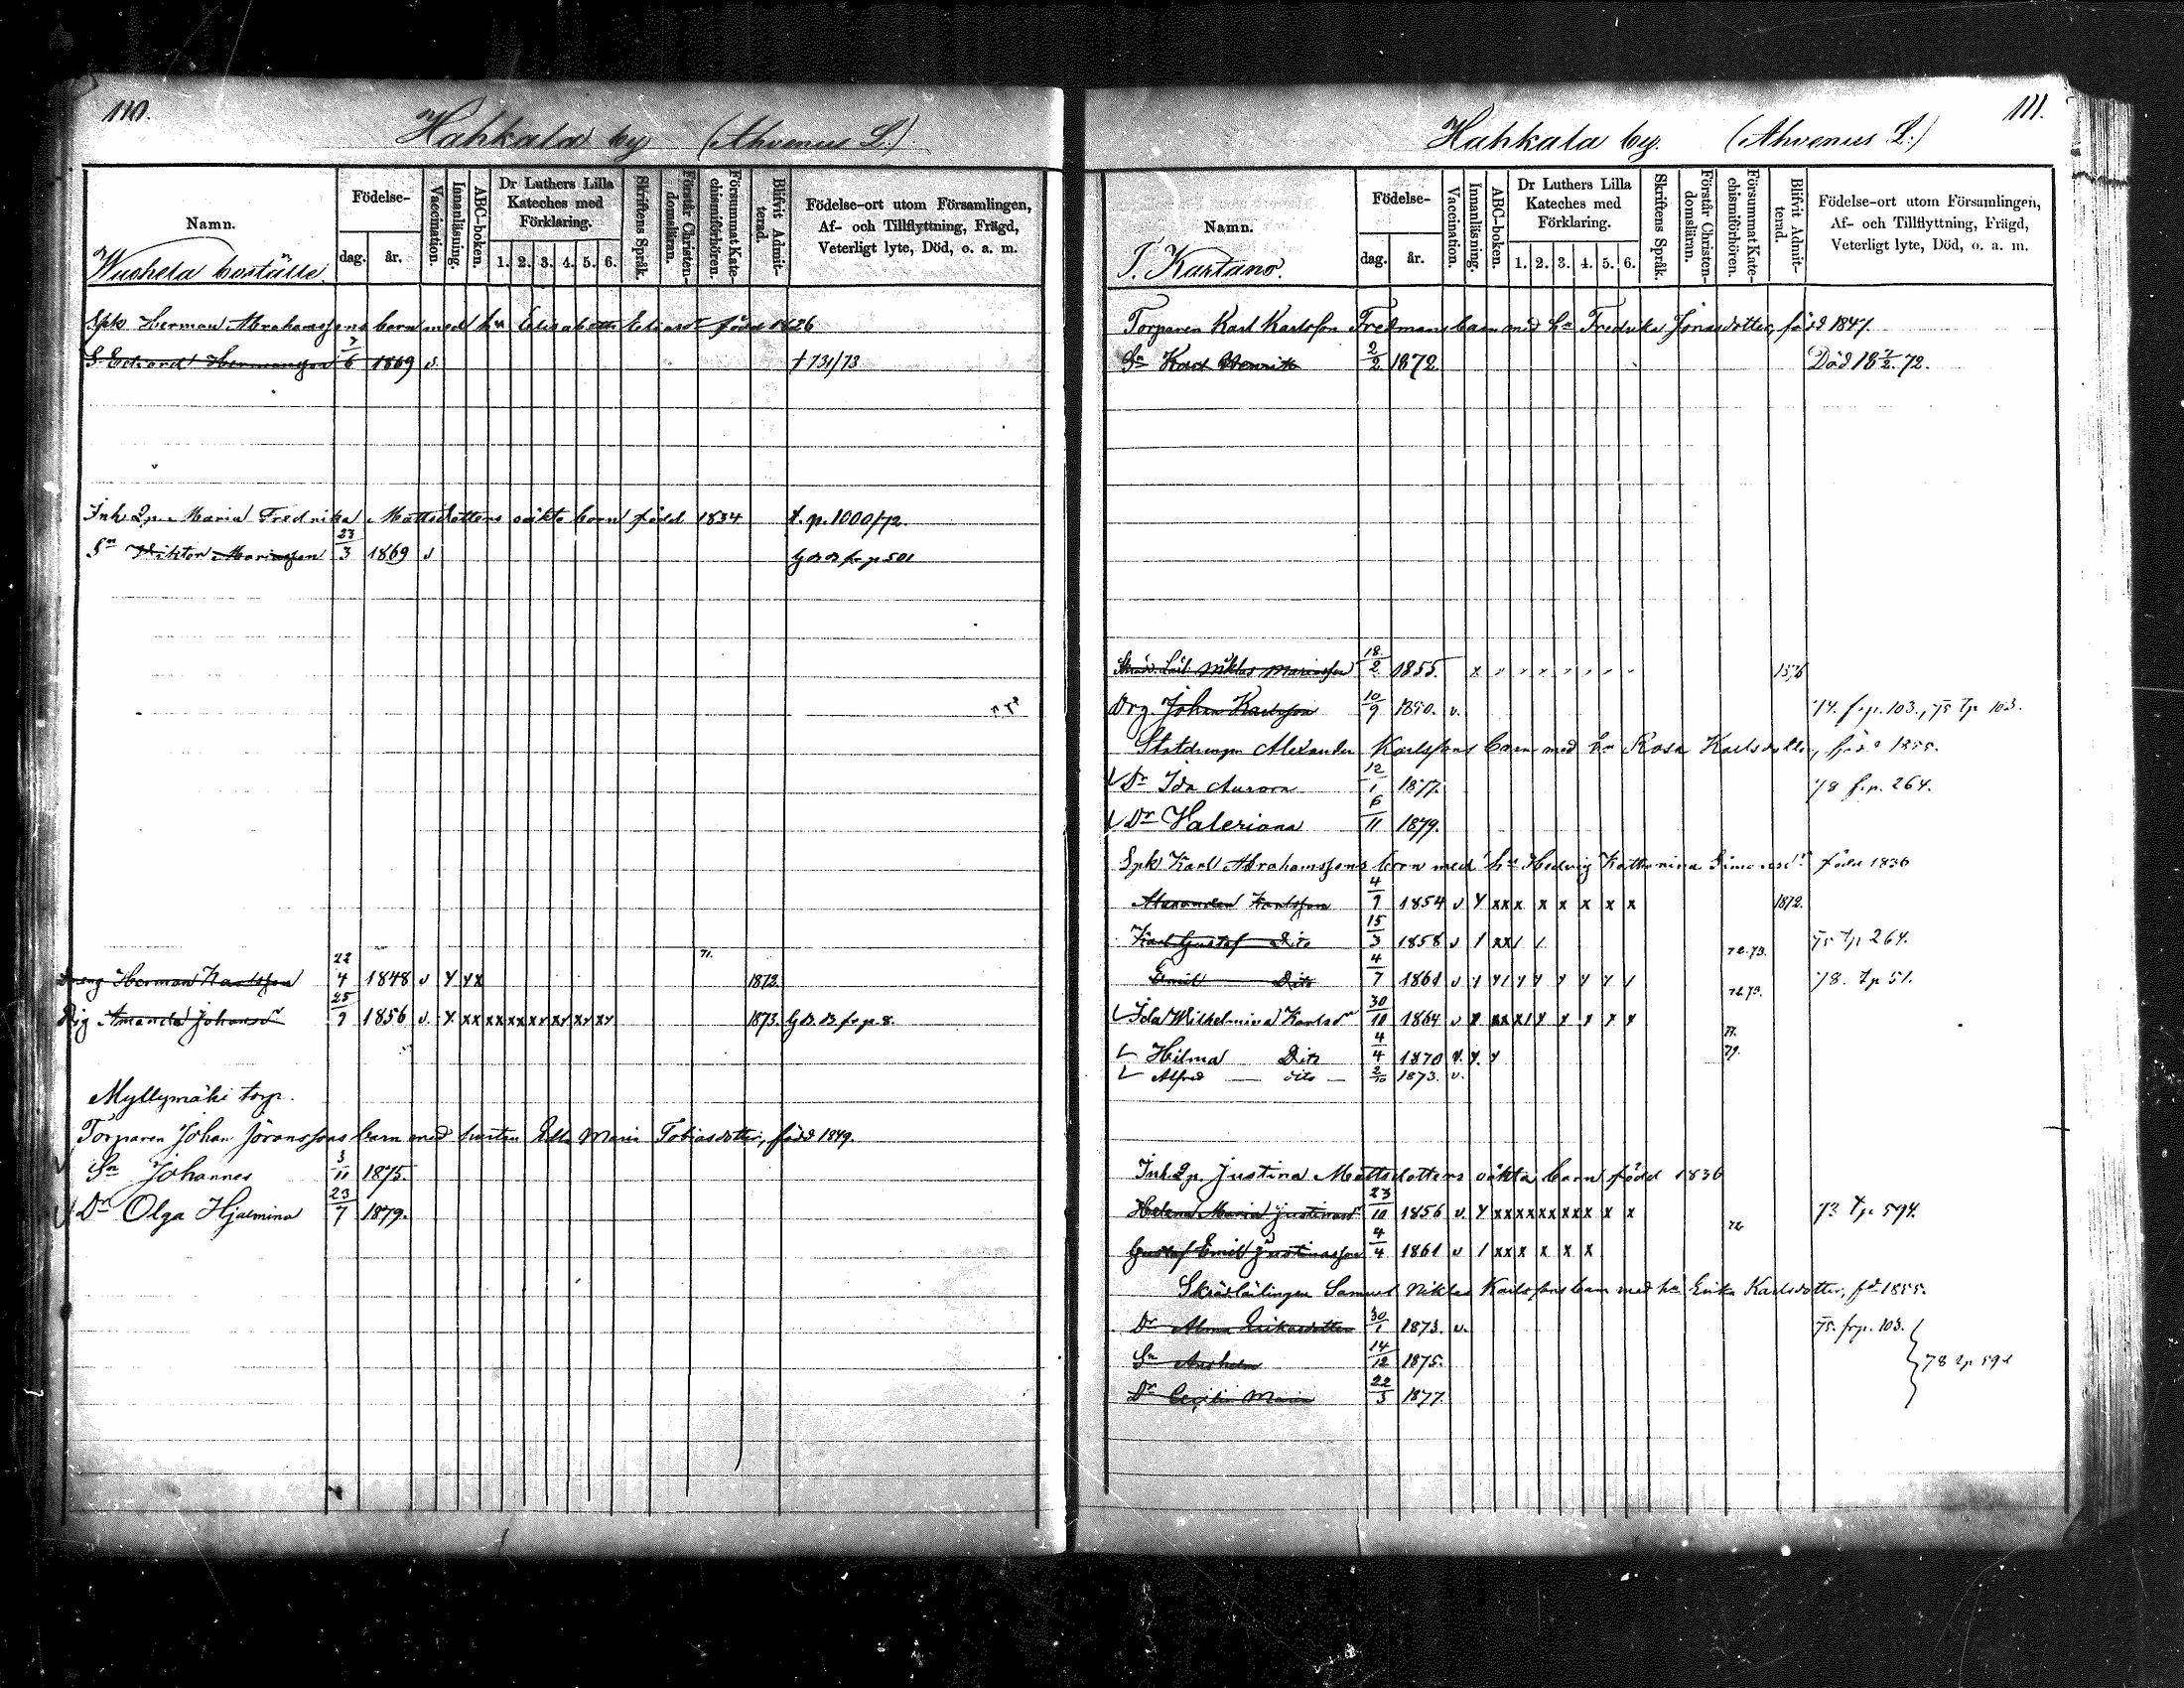 110.
Hahkala by (Ahvenus L.)
Namn.
Födelse-
dag.
år.
Vaccination.
Innanläsning.
ABC-boken.
Dr Luthers Lilla Kateches med Förklaring.
1. 2. 3. 4. 5. 6.
Skriftens Språk.
Förstår Christendomslärm.
Försummat Katechismiförhören.
Blifvit Admitterad.
Födelse-ort utom Församlingen, Af- och Tillflyttning, Frägd, Veterligt lyte, Död, o. a. m.
Wuohela boställe.
Spk Herman Abrahamssons barn med hu Elisabeth Eliasdr född 1826
S. Edvard Hermansson 7/6 1869 v. † 731/73
Inh. Qp. Maria Fredrika Mattsdotters oäkta barn född 1834 t. p. 1000/72.
Sn Viktor Mariasson 23/3 1869 v fr p 501
Dreng Herman Karlsson 22/4 1848 v y y x 71. 1872
Pig Amanda Johansdr 25/9 1856 v. y xx xx xx xy xy xy xy 1873. fr p. 8.
Myllymäki torp.
Torparen Johan Jöranssons barn med hustru Edla Maria Tobiasdotter, född 1849.
Sn Johannes 3/11 1875.
Dr Olga Hjalmina 23/7 1879.
111.
Hahkala by. (Ahvenus L.)
Namn.
Födelse-
dag.
år.
Vaccination.
Innanläsning.
ABC-boken.
Dr Luthers Lilla Kateches med Förklaring.
1. 2. 3. 4. 5. 6.
Skriftens Språk.
Förstår Christendomslärm.
Försummat Katechismiförhören.
Blifvit Admitterad.
Födelse-ort utom Församlingen, Af- och Tillflyttning, Frägd, Veterligt lyte, Död, o. a. m.
T. Kartano.
Torparen Karl Karlsson Fredmans barn med hu Fredrika Jonasdotter, född 1847.
Sn Karl Henrik 2/2 1872 Död 18 7/2 72.
Niklas Mariasson 18/2 1855. x
Drg. Johan Karlsson 10/9 1850. v. 74. fr p. 103., 75 tp 103.
Statdrengen Alexander Karlssons barn med hu Rosa Karlsdotter, född 1855.
Dr Ida Aurora 12/1 1877. 78 fr p. 264.
Dr Valeriana 6/11 1879.
Spk Karl Abrahamssons barn med hu Hedvig Katharina Simonsdr född 1836
Alexander Karlsson 4/7 1854 v y xx x x x x x x 1872.
Karl Gustaf Dito 15/3 1858 v / xx / / 72. 73. 75 tp 264.
Emil Dito 4/7 1861 v y y/ y y y y y / 72 73. 78. tp 51.
Ida Wilhelmina Karlsdr 30/10 1864 v x xx x/ x x x x x
Hilma Dito 4/4 1870 v. y. y 77. 79.
Alfred — dito — 2/10 1873. v.
Inh. Qp. Justina Mattsdotters oäkta barn född 1836
Helena Maria Justinasdr 23/10 1856 v. y xx xx xx xx x x x 73 tp 594.
Gustaf Emil Justinasson 4/4 1861 v / xx x x x x 72
Skrädlärlingen Samuel Niklas Karlssons barn med hu Erika Karlsdotter, fd 1855.
Dr Alma Erikasdotter 30/1 1873. v. 75. fr p. 103.
Sn Anshelm 14/12 1875. 78 tp 591
Dr Cecilia Maria 22/3 1877.